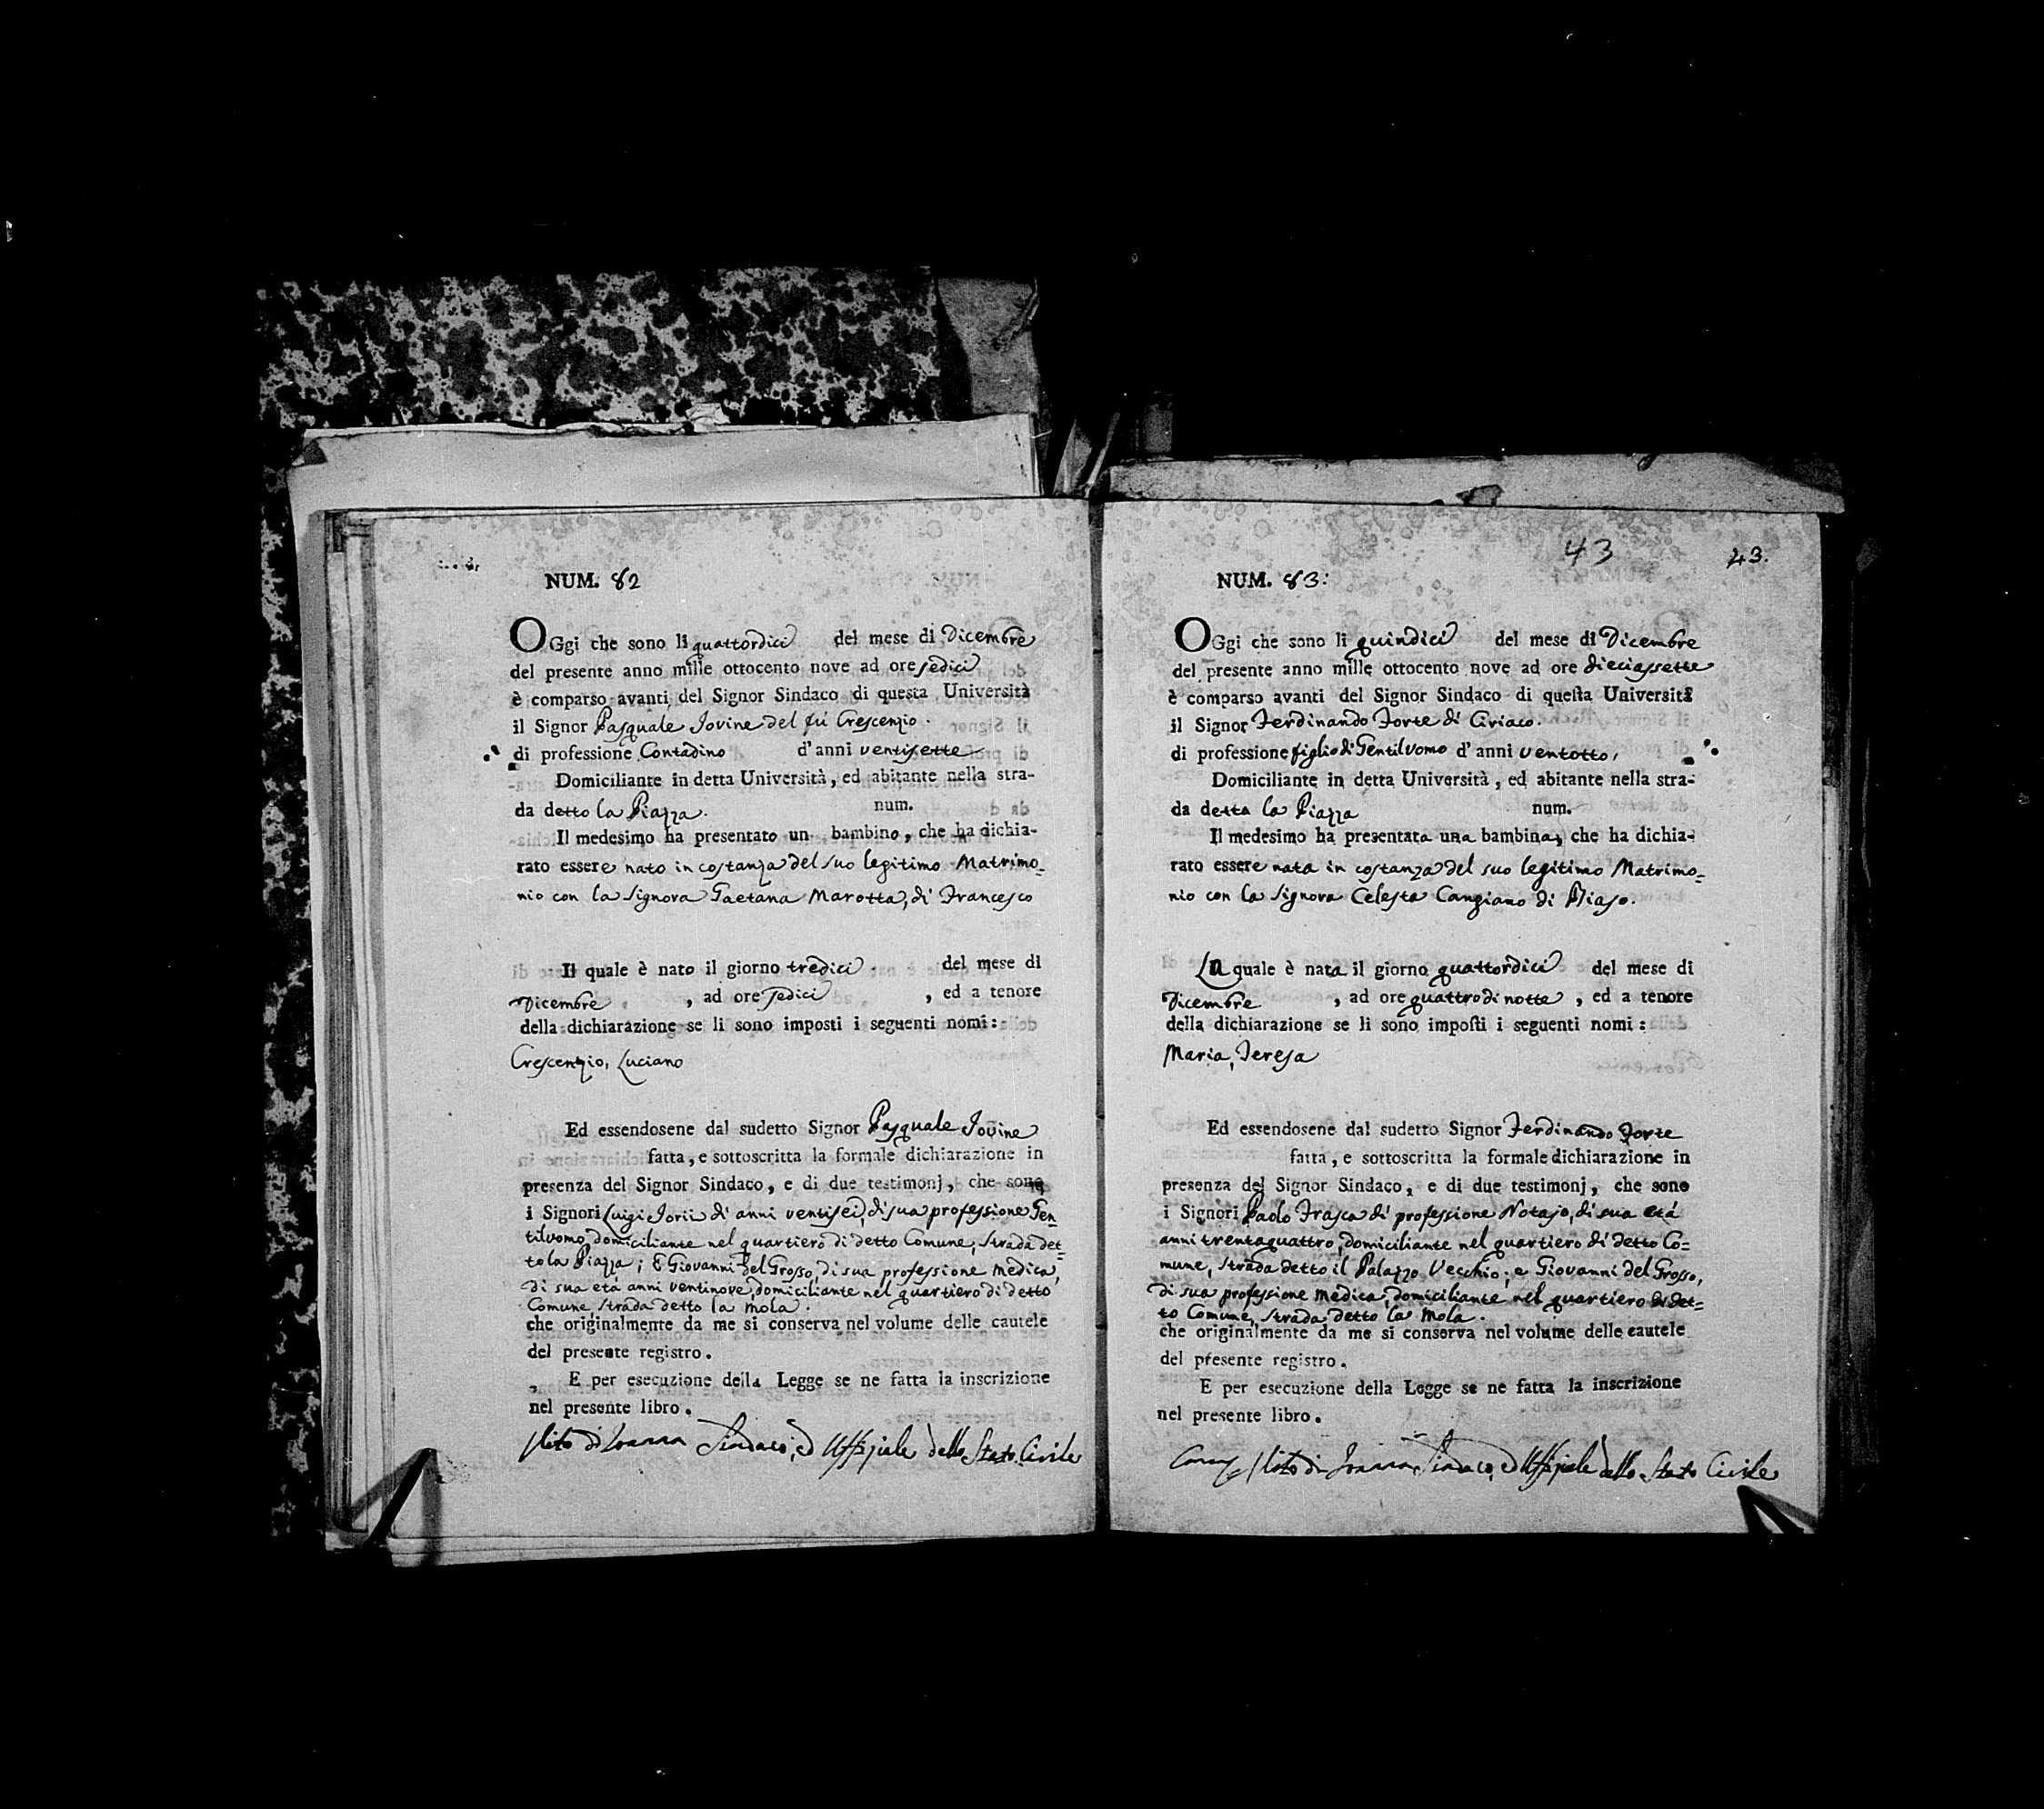 NUM. 82
OGgi che sono li quattordici del mese di Dicembre
del presente anno mille ottocento nove ad ore sedici
è comparso avanti del Signor Sindaco di questa Università
il Signor Pasquale Iovine del fù Crescenzio.
di professione Contadino d'anni ventisette
Domiciliante in detta Università, ed abitante nella stra-
da detto la Piazza. num.
Il medesimo ha presentato un bambino, che ha dichia-
rato essere nato in costanza del suo legitimo Matrimo=
nio con la Signora Gaetana Marotta, di Francesco
Il quale è nato il giorno tredici del mese di
Dicembre , ad ore sedici , ed a tenore
della dichiarazione se li sono imposti i seguenti nomi:
Crescenzio, Luciano
Ed essendosene dal sudetto Signor Pasquale Iovine
fatta, e sottoscritta la formale dichiarazione in
presenza del Signor Sindaco, e di due testimonj, che sono
i Signori Luigi Iorii di anni ventisei, di sua professione Gen=
tiluomo, domiciliante nel quartiero di detto Comune, strada det=
to la Piazza; E Giovanni del Grosso, di sua professione Medica,
di sua età anni ventinove, domiciliante nel quartiero di detto
Comune, strada detto la Mola.
che originalmente da me si conserva nel volume delle cautele
del presente registro.
E per esecuzione della Legge se ne fatta la inscrizione
nel presente libro.
Sindaco, ed Uffiziale dello Stato Civile
43 43.
NUM. 83:
OGgi che sono li quindici del mese di Dicembre
del presente anno mille ottocento nove ad ore dieciassette
è comparso avanti del Signor Sindaco di questa Università
il Signor Ferdinando Forte di Ciriaco.
di professione figlio di Gentiluomo d'anni ventotto,
Domiciliante in detta Università, ed abitante nella stra-
da detta la Piazza num.
Il medesimo ha presentata una bambina, che ha dichia-
rato essere nata in costanza del suo legitimo Matrimo=
nio con la Signora Celesta Cangiano di Biaso.
La quale è nata il giorno quattordici del mese di
Dicembre , ad ore quattro di notte , ed a tenore
della dichiarazione se li sono imposti i seguenti nomi:
Maria, Teresa
Ed essendosene dal sudetto Signor Ferdinando Forte
fatta, e sottoscritta la formale dichiarazione in
presenza del Signor Sindaco, e di due testimonj, che sono
i Signori Paolo Frasca di professione Notajo, di sua età
anni trentaquattro, domiciliante nel quartiero di detto Co=
mune, strada detto il Palazzo Vecchio; e Giovanni del Grosso,
di sua professione Medica, domiciliante nel quartiero di det=
to Comune, strada detto la Mola.
che originalmente da me si conserva nel volume delle cautele
del presente registro.
E per esecuzione della Legge se ne fatta la inscrizione
nel presente libro.
Sindaco, ed Uffiziale dello Stato Civile